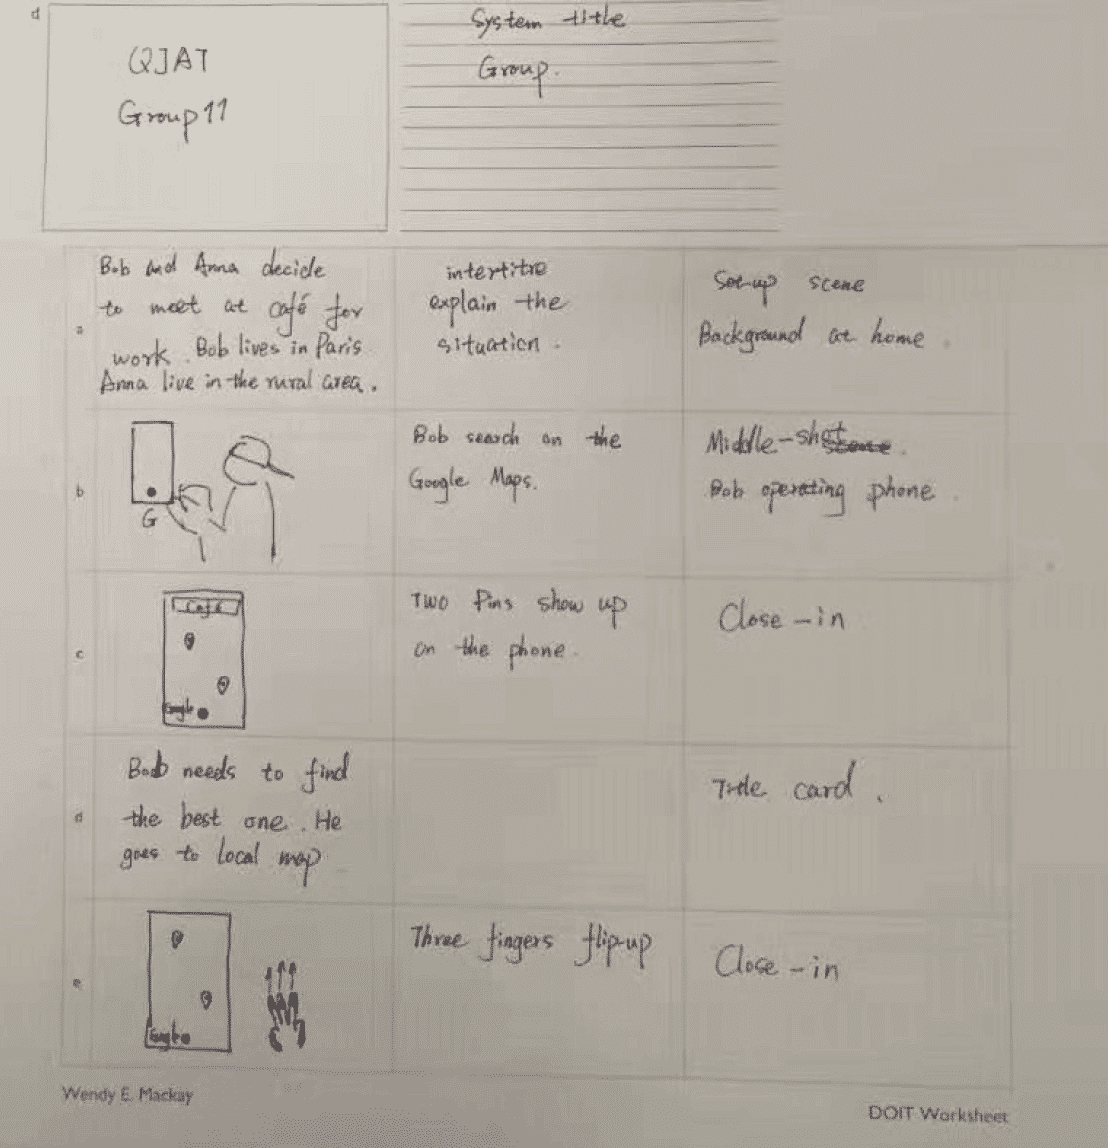 d
QJAT
Group 11
System title
Group.
a
Bob and Anna decide
to meet at café for
work. Bob lives in Paris
Anna live in the rural area.
intertitre
explain the
situation.
Set-up scene
Background at home.
b
G
Bob search on the
Google Maps.
Middle-shot scene.
Bob operating phone.
c
Café
Google
Two Pins show up
on the phone.
Close-in
d
Bob needs to find
the best one. He
goes to local map
Title card.
e
Google
Three fingers flip-up
Close-in
Wendy E. Mackay
DOIT Worksheet